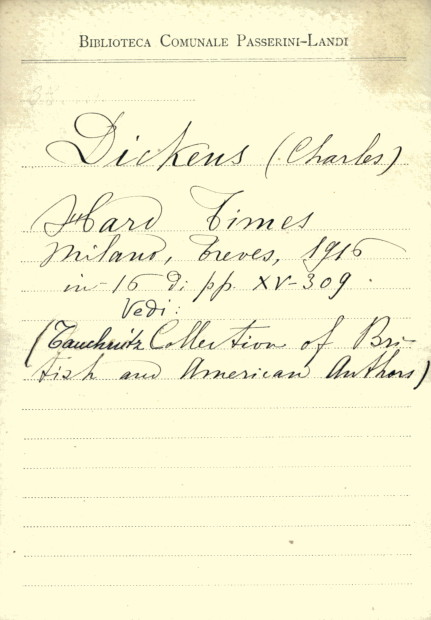 BIBLIOTECA COMUNALE PASSERINI-LANDI
Dickens (Charles)
Hard Times
Milano, Treves, 1916
in-16 di pp. XV-309.
Vedi:
(Tauchnitz Collection of Bri-
tish and American Authors)